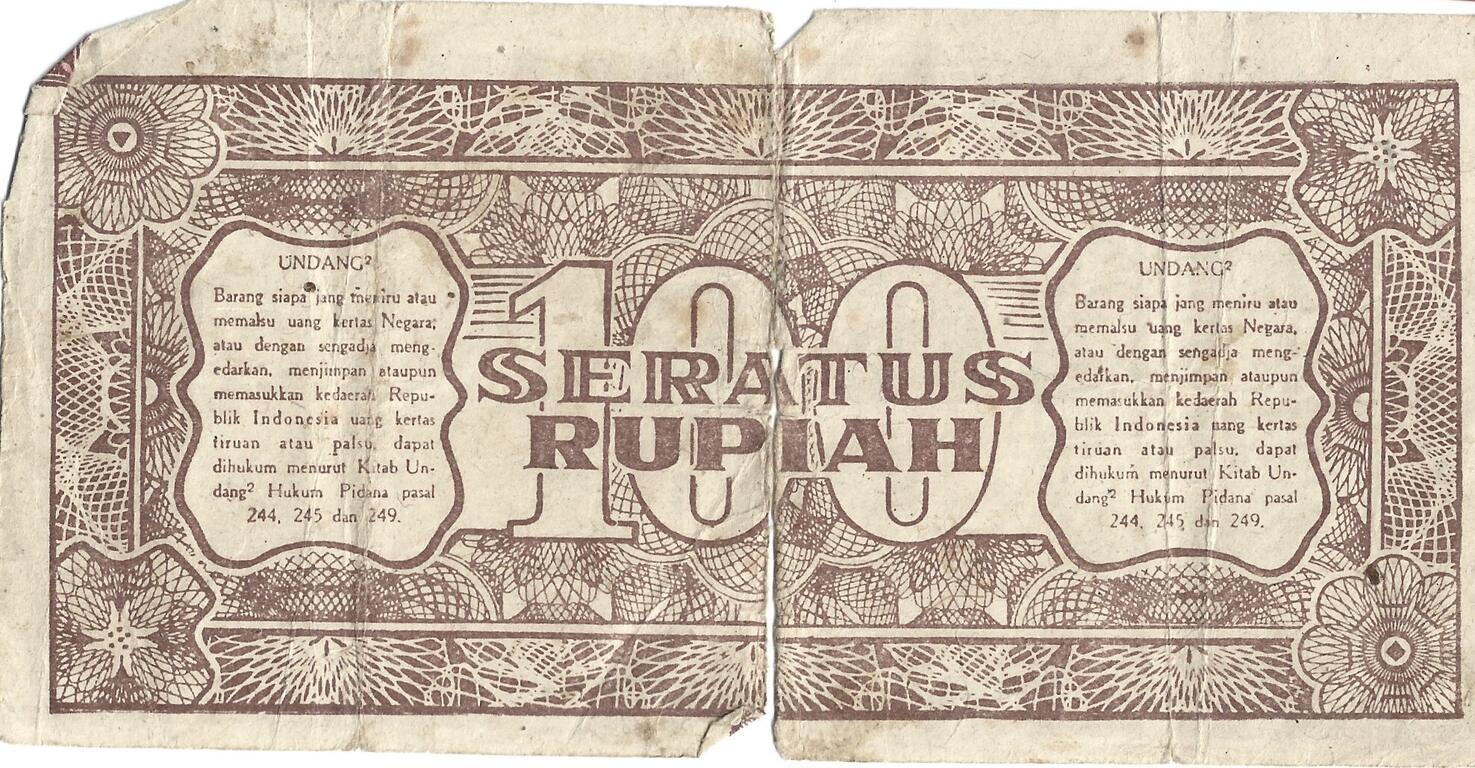 UNDANG²
Barang siapa jang meniru atau
memalsu uang kertas Negara,
atau dengan sengadja meng-
edarkan, menjimpan ataupun
memasukkan kedaerah Repu-
blik Indonesia uang kertas
tiruan atau palsu, dapat
dihukum menurut Kitab Un-
dang² Hukum Pidana pasal
244, 245 dan 249.
100
SERATUS
RUPIAH
UNDANG²
Barang siapa jang meniru atau
memalsu uang kertas Negara,
atau dengan sengadja meng-
edarkan, menjimpan ataupun
memasukkan kedaerah Repu-
blik Indonesia uang kertas
tiruan atau palsu, dapat
dihukum menurut Kitab Un-
dang² Hukum Pidana pasal
244, 245 dan 249.